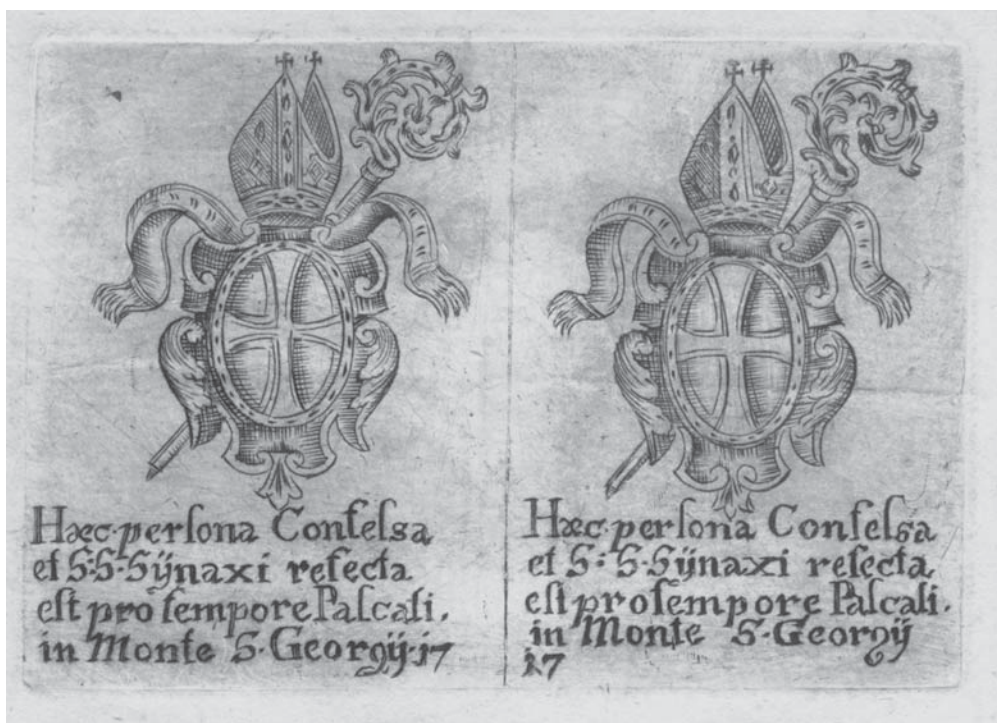 Hæc·perſona Confeſsa
et S:S·Sÿnaxi refecta
eſt pro tempore Paſcali.
in Monte S·Georgÿ·17
Hæc·perſona Confeſsa
et S:S·Sÿnaxi refecta
eſt pro tempore Paſcali.
in Monte S·Georgÿ
17